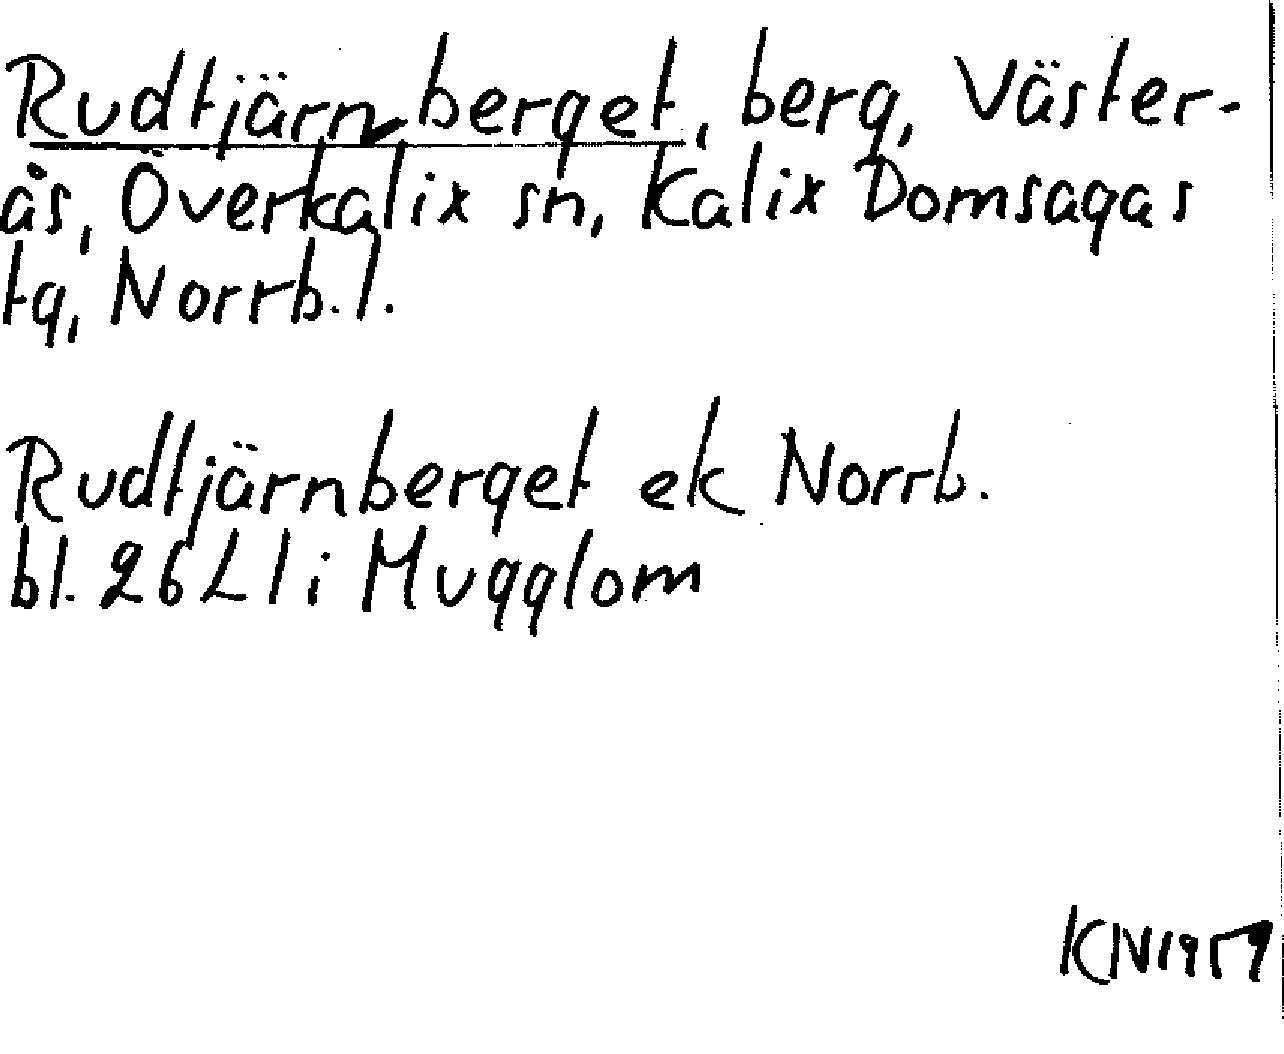 Rudtjärnberget, berg, Väster-
ås, Överkalix sn, Kalix Domsagas
tg, Norrb. l.
Rudtjärnberget ek Norrb.
bl. 26 L l i Mugglom